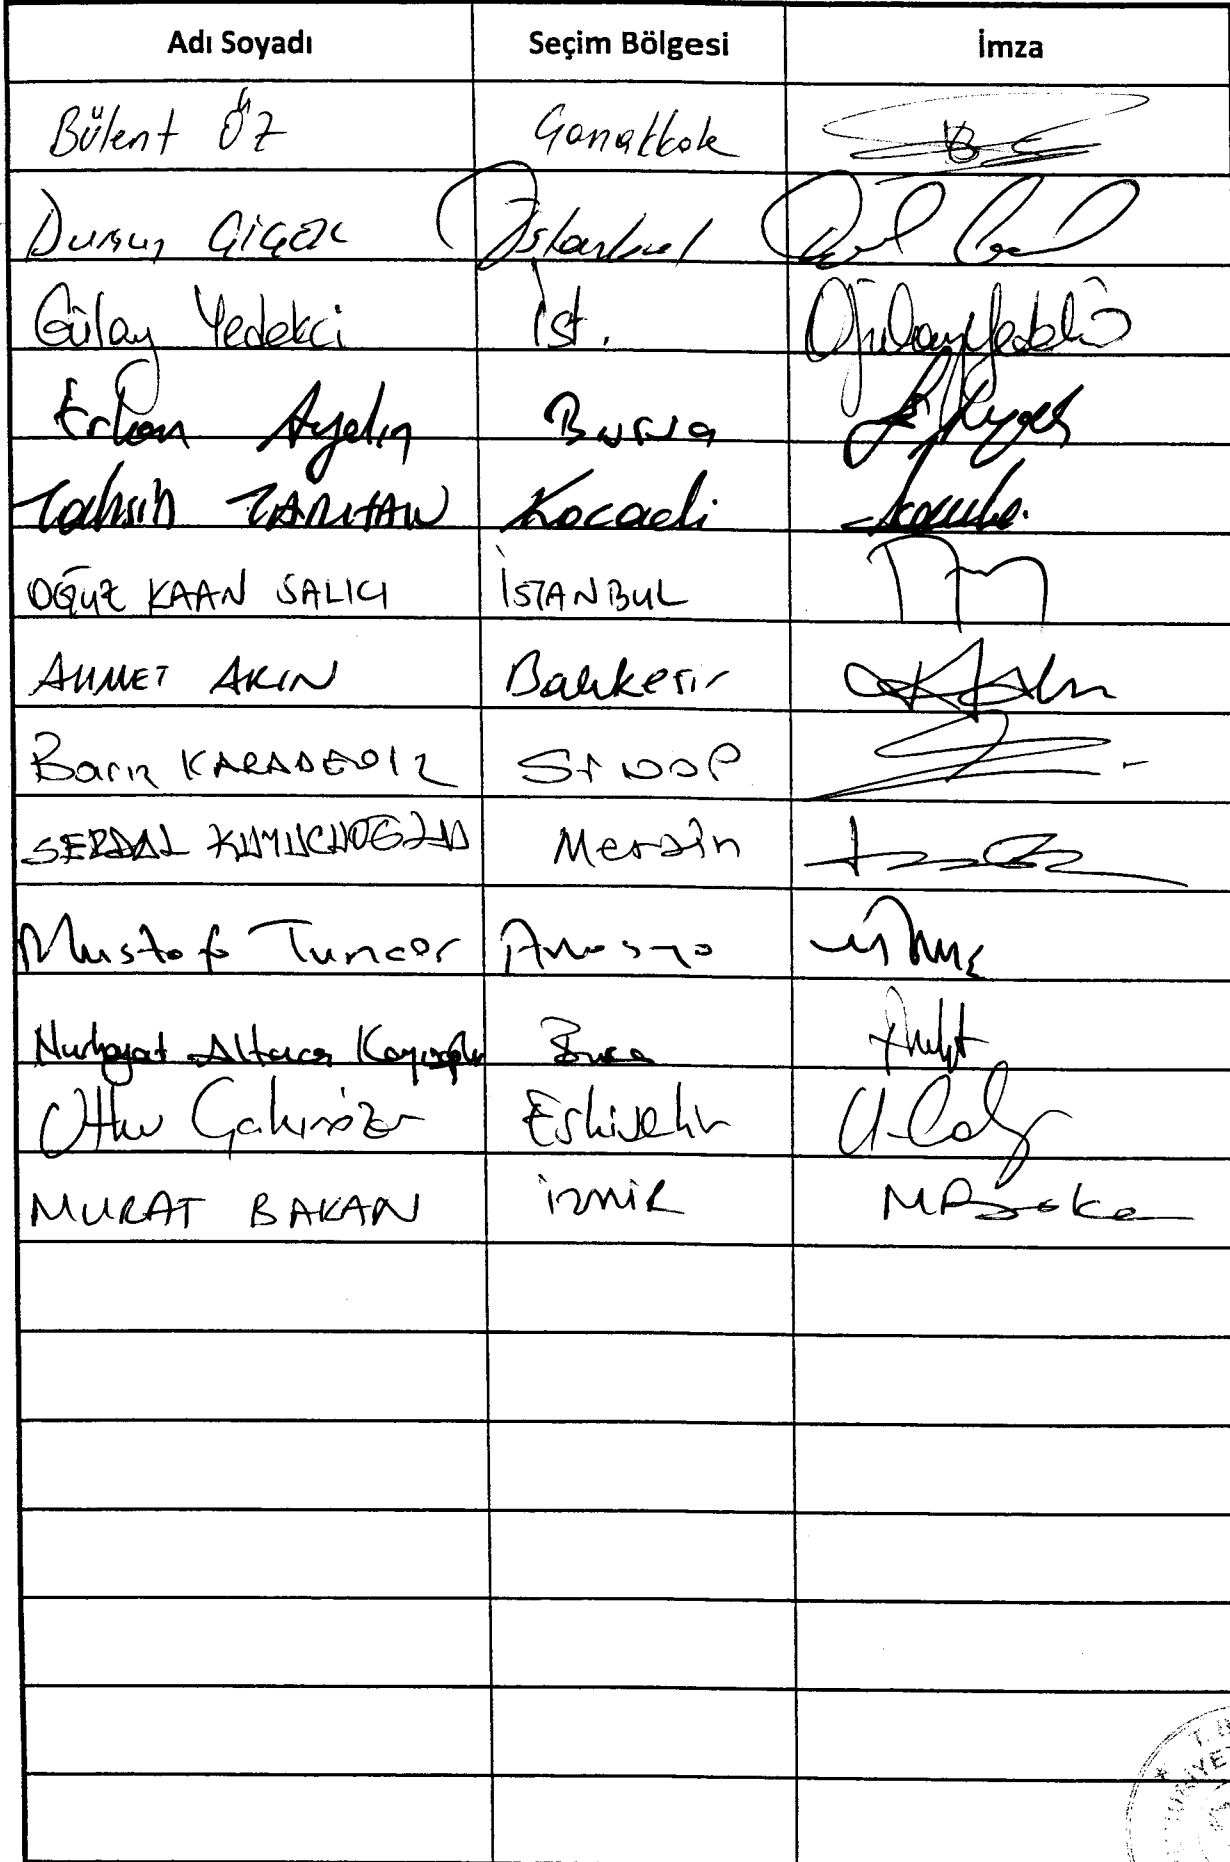 Adı Soyadı Seçim Bölgesi İmza
Bülent ÖZ Çanakkale
Dursun ÇİÇEK İstanbul
Gülay Yedekci İst. Gülay Yedekci
Erkan Aydın Bursa
Tahsin TARHAN Kocaeli
OĞUZ KAAN SALICI İSTANBUL
AHMET AKIN Balıkesir
Barış KARADENİZ SİNOP
SERDAL KUYUCUOĞLU Mersin
Mustafa Tuncer Amasya
Nurhayat Altaca Kayışoğlu Bursa
Utku Çakırözer Eskişehir
MURAT BAKAN İZMİR